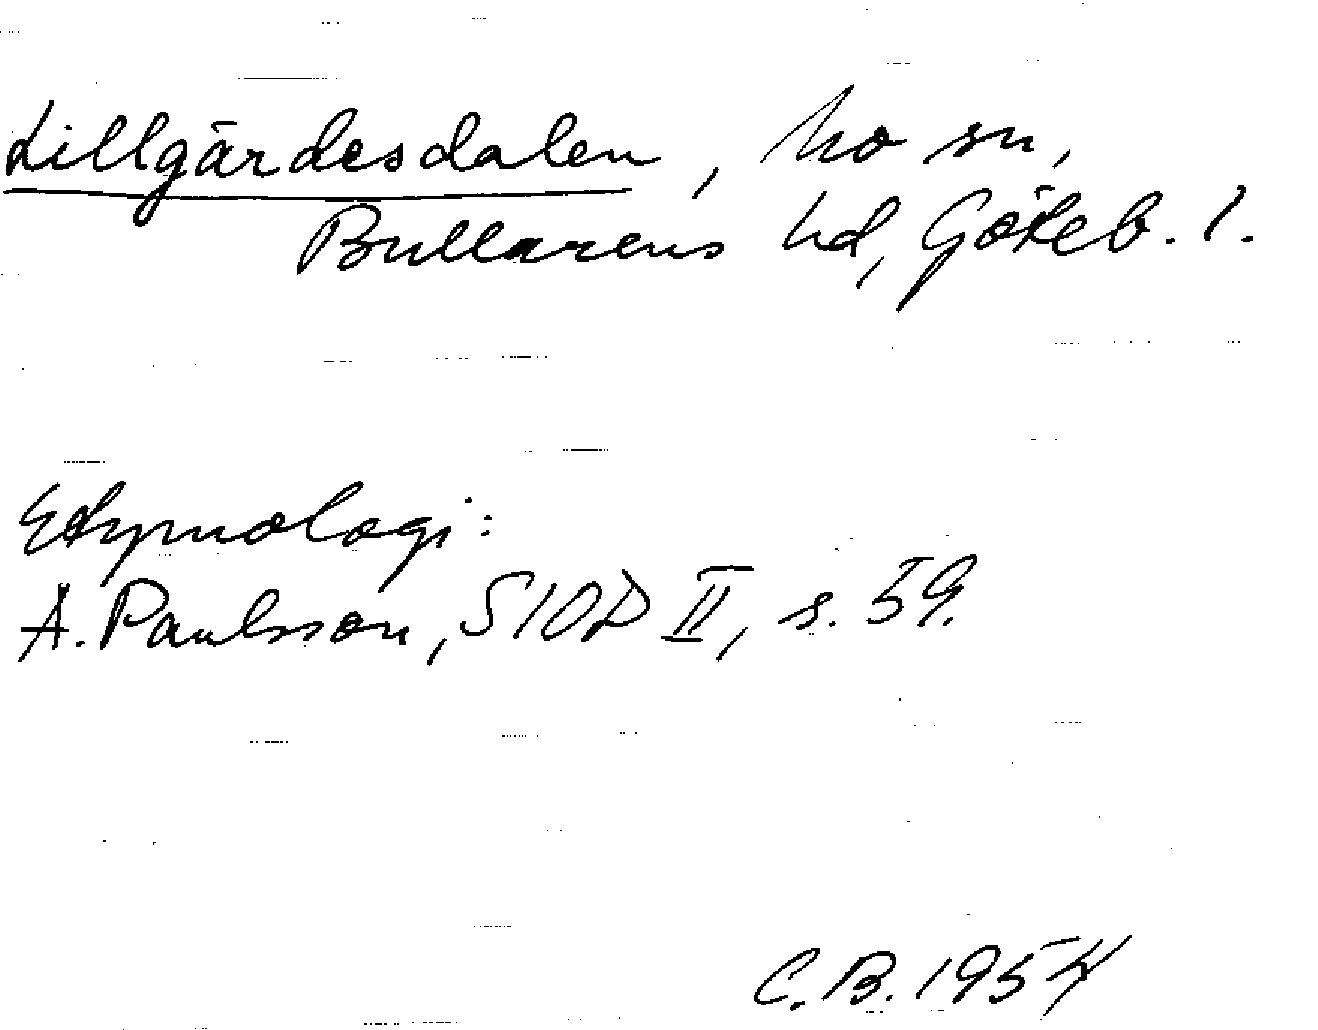 Lillgärdesdalen, Mo sn,
Bullarens hd, Göteb. l.
Etymologi:
A. Paulsson, SIOD II, s. 59.
C.B. 1954